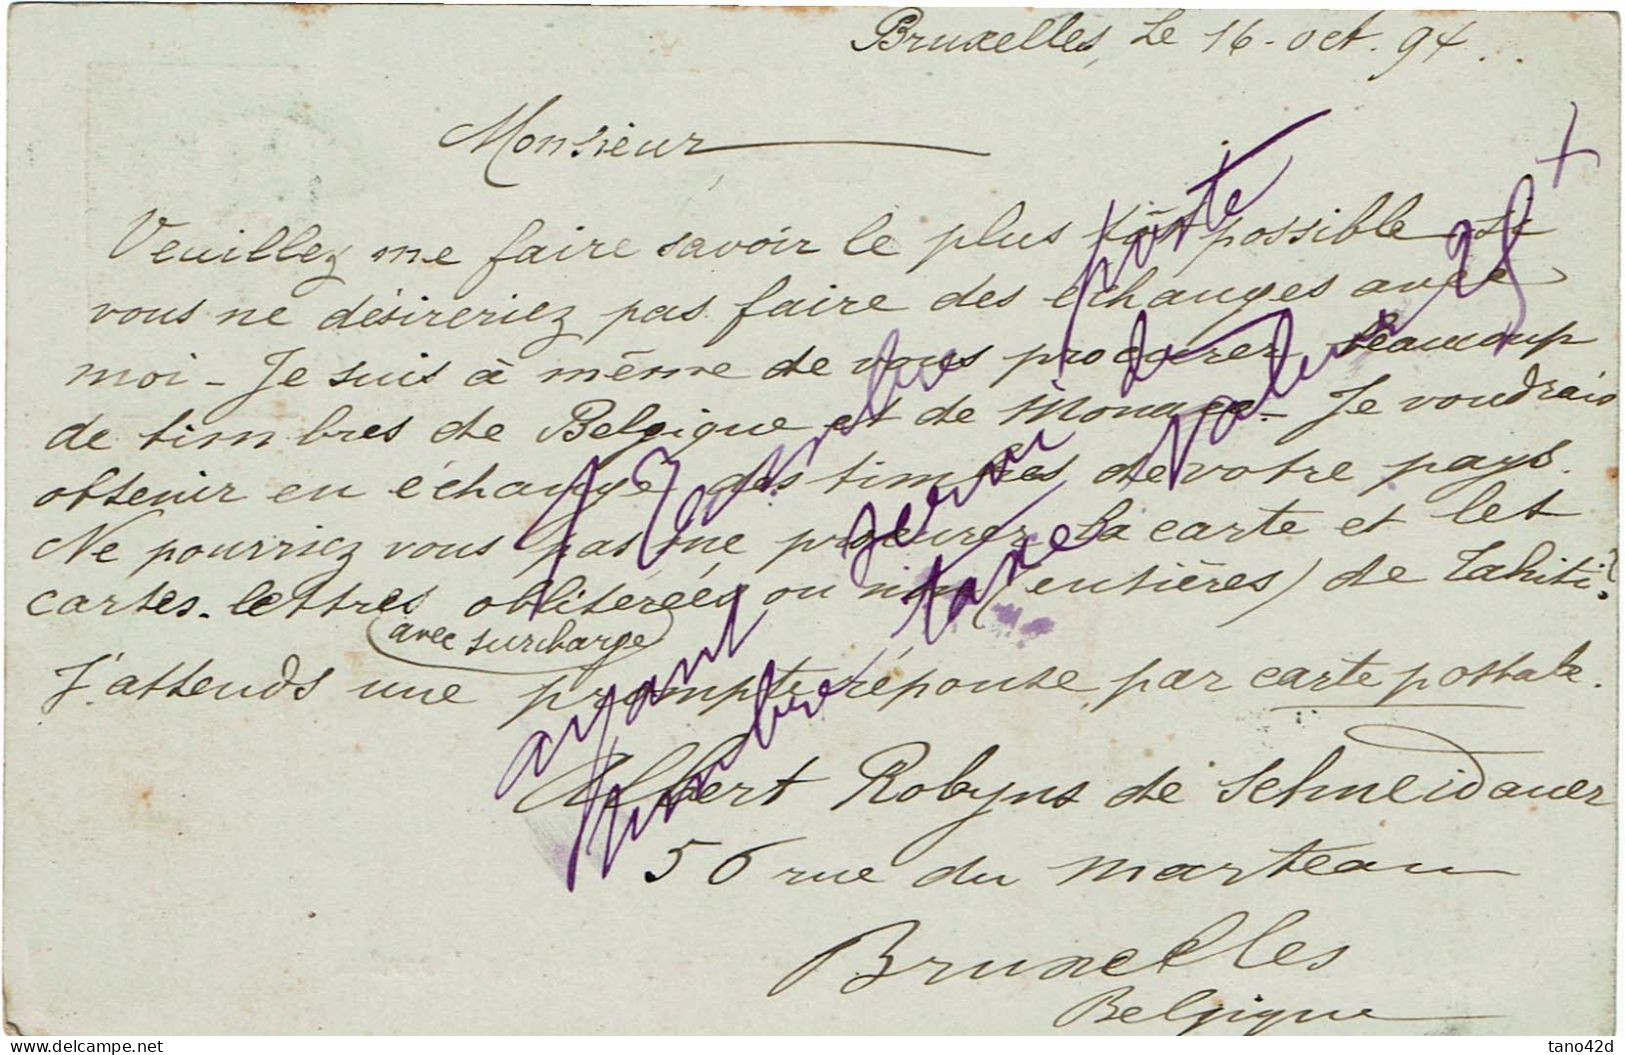 Bruxelles, Le 16 - oct. 94.
Monsieur
Veuillez me faire savoir le plus tôt possible si
vous ne désireriez pas faire des échanges avec
moi - Je suis à même de vous procurer beaucoup
de timbres de Belgique et de Monaco - Je voudrais
obtenir en échange des timbres de votre pays.
Ne pourriez vous pas me procurer la carte et les
cartes-lettres oblitérées ou non (entières) de Tahiti?
avec surcharge
J'attends une prompte réponse, par carte postale.
Albert Robyns de Schneidauer
56 rue du marteau
Bruxelles
Belgique
poste
ayant servi de
timbre taxe valeur 25
+
delcampe.net
tano42d